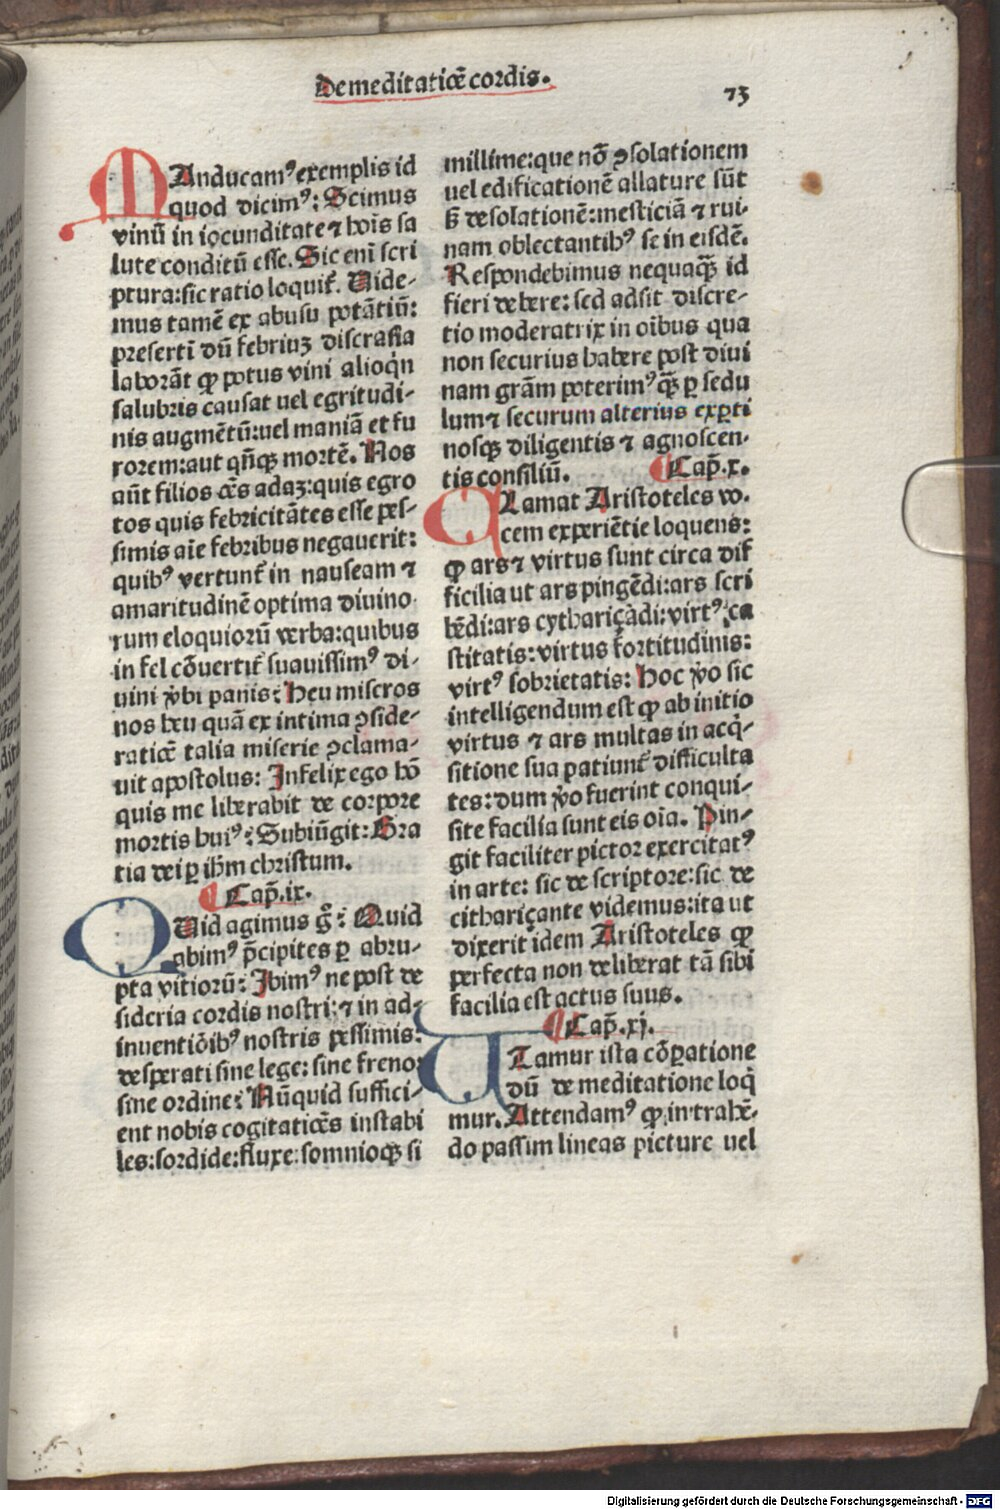 De meditatiõe cordis.
73
MAnducamꝰ exemplis id
quod dicimꝰ: Scimus
vinũ in iocunditate ⁊ hoĩs sa
lute conditũ esse. Sic enĩ scri
ptura: sic ratio loquiť. Uide-
mus tamẽ ex abusu potãtiũ:
presertĩ dũ febriuꝫ discrasia
laborãt ꝙ potus vini alioqͥn
salubris causat uel egritudi-
nis augmẽtũ: uel maniã et fu
rorem: aut qñqꝫ mortẽ. Nos
aũt filios oẽs adaꝫ: quis egro
tos quis febricitãtes esse pes-
simis aĩe febribus negauerit:
quibꝰ vertunť in nauseam ⁊
amaritudinẽ optima diuino
rum eloquiorũ verba: quibus
in fel cõuertiť suauissimꝰ di-
uini v̾bi panis: Heu miseros
nos heu quã ex intima ꝯside-
ratiõe talia miserie ꝓclama-
uit apostolus: Infelix ego hõ
quis me liberabit de corpore
mortis huiꝰ: Subiũgit: Gra
tia dei ꝑ ihm̃ christum.
¶ Cap̃. ix.
QUid agimus gͦ: Quid
abimꝰ p̃cipites ꝑ abru-
pta vitiorũ: Ibimꝰ ne post de
sideria cordis nostri: ⁊ in ad-
inuentiõibꝰ nostris pessimis:
desperati sine lege: sine freno:
sine ordine: Nũquid suffici-
ent nobis cogitatiões instabi
les: sordide: fluxe: somnioqꝫ si
millime: que nõ ꝯsolationem
uel edificationẽ allature sũt
sꝫ desolationẽ: mesticiã ⁊ rui-
nam oblectantibꝰ se in eisdẽ.
Respondebimus nequaqꝫ̃ id
fieri debere: sed adsit discre-
tio moderatrix in oĩbus qua
non securius habere post diui
nam grãm poterimꝰ qꝫ̃ ꝑ sedu
lum ⁊ securum alterius exꝑti
nosqꝫ diligentis ⁊ agnoscen-
tis consiliũ. ¶ Cap̃. x.
CLamat Aristoteles vo-
cem experiẽtie loquens:
ꝙ ars ⁊ virtus sunt circa dif
ficilia ut ars pingẽdi: ars scri
bẽdi: ars cythariçãdi: virtꝰ ca
stitatis: virtus fortitudinis:
virtꝰ sobrietatis: Hoc v̾o sic
intelligendum est ꝙ ab initio
virtus ⁊ ars multas in acqͥ-
sitione sua patiunť difficulta
tes: dum v̾o fuerint conqui-
site facilia sunt eis oĩa. Pin-
git faciliter pictor exercitatꝰ
in arte: sic de scriptore: sic de
cithariçante videmus: ita ut
dixerit idem Aristoteles ꝙ
perfecta non deliberat tã sibi
facilia est actus suus.
¶ Cap̃. xj.
UTamur ista cõꝑatione
dũ de meditatione loqͥ
mur. Attendamꝰ ꝙ in trahẽ-
do passim lineas picture uel
Digitalisierung gefördert durch die Deutsche Forschungsgemeinschaft - DFG